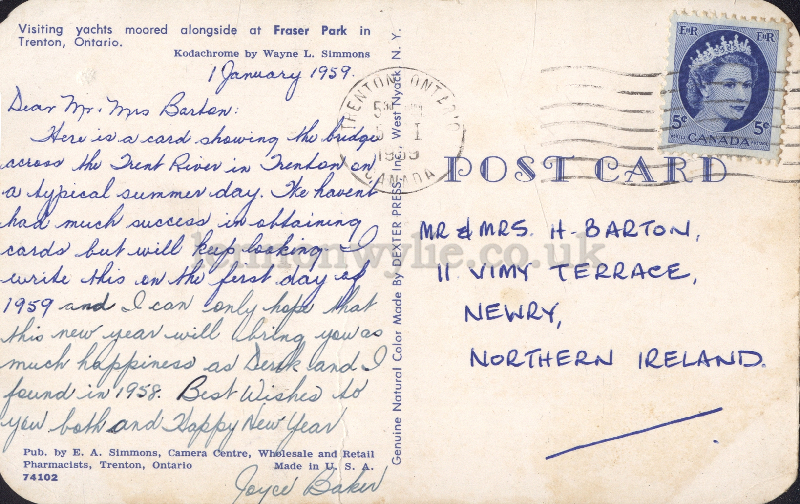 Visiting yachts moored alongside at Fraser Park in
Trenton, Ontario.
Kodachrome by Wayne L. Simmons
1 January 1959.
Dear Mr. Mrs Barton:
Here is a card showing the bridge
across the Trent River in Trenton on
a typical summer day. We havent
had much success in obtaining
cards but will keep looking I
write this on the first day of
1959 and I can only hope that
this new year will bring you as
much happiness as Derek and I
found in 1958. Best Wishes to
you both and Happy New Year
Joyce Baker
Pub. by E. A. Simmons, Camera Centre, Wholesale and Retail
Pharmacists, Trenton, Ontario Made in U. S. A.
74102
Genuine Natural Color Made By DEXTER PRESS, Inc., West Nyack, N. Y.
TRENTON ONTARIO
1959
CANADA
E II R E II R
5¢ CANADA 5¢
POST CARD
MR & MRS. H. BARTON,
11 VIMY TERRACE,
NEWRY,
NORTHERN IRELAND.